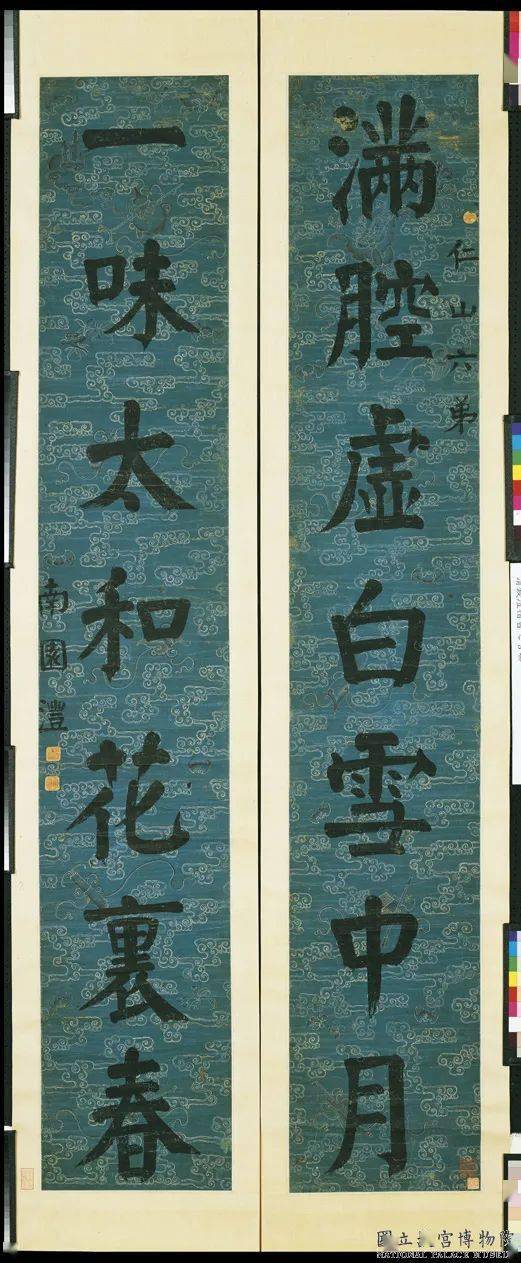 滿腔虛白雪中月
仁山六弟
一味太和花裏春
南園灃
國立故宮博物院
NATIONAL PALACE MUSEUM